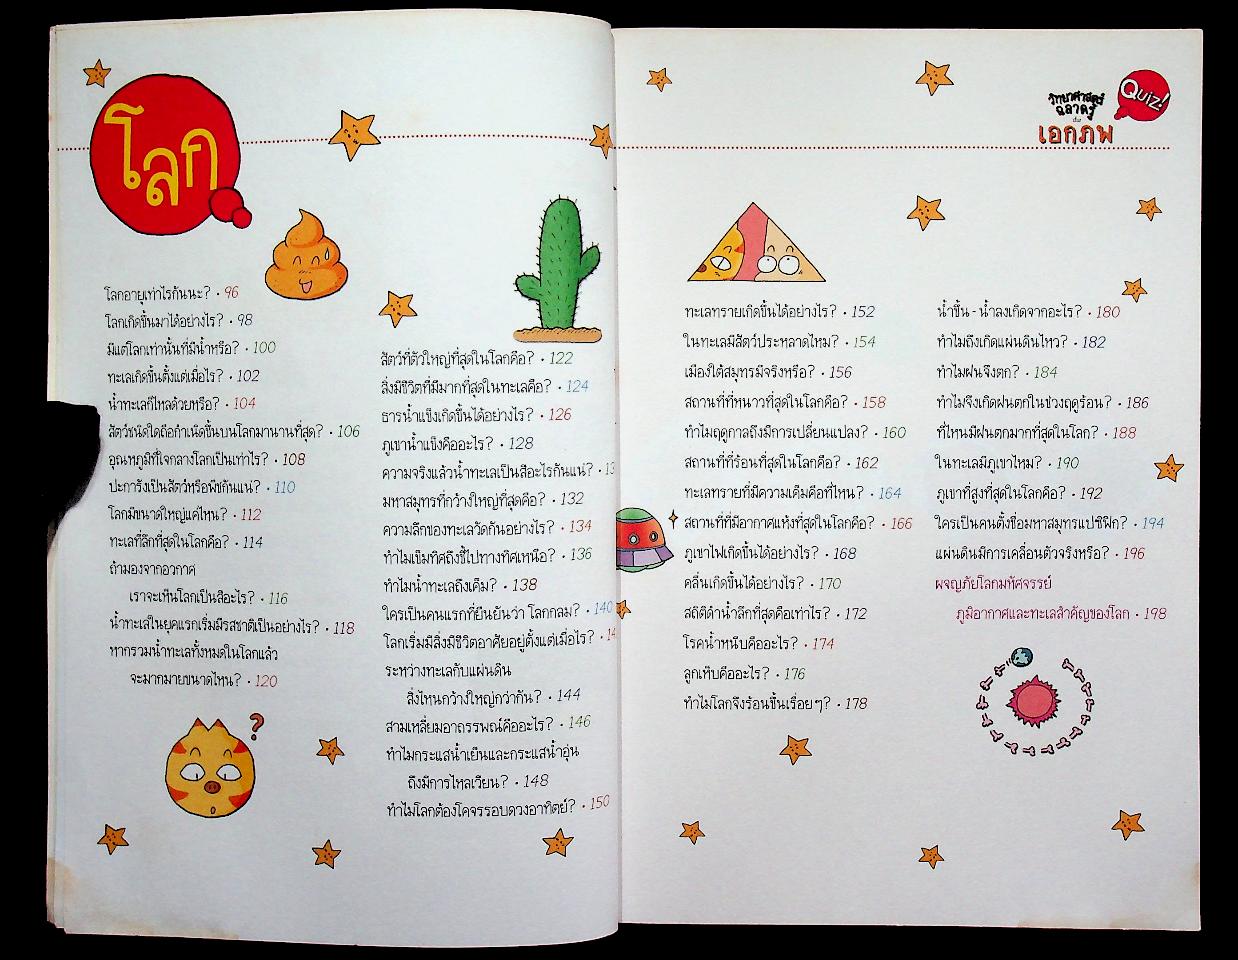 โลก
โลกอายุเท่าไรกันนะ? · 96
โลกเกิดขึ้นมาได้อย่างไร? · 98
มีแต่โลกเท่านั้นที่มีน้ำหรือ? · 100
ทะเลเกิดขึ้นตั้งแต่เมื่อไร? · 102
น้ำทะเลก็ไหลด้วยหรือ? · 104
สัตว์ชนิดใดถือกำเนิดขึ้นบนโลกมานานที่สุด? · 106
อุณหภูมิที่ใจกลางโลกเป็นเท่าไร? · 108
ปะการังเป็นสัตว์หรือพืชกันแน่? · 110
โลกมีขนาดใหญ่แค่ไหน? · 112
ทะเลที่ลึกที่สุดในโลกคือ? · 114
ถ้ามองจากอวกาศ
เราจะเห็นโลกเป็นสีอะไร? · 116
น้ำทะเลในยุคแรกเริ่มมีรสชาติเป็นอย่างไร? · 118
หากรวมน้ำทะเลทั้งหมดในโลกแล้ว
จะมากมายขนาดไหน? · 120
?
สัตว์ที่ตัวใหญ่ที่สุดในโลกคือ? · 122
สิ่งมีชีวิตที่มีมากที่สุดในทะเลคือ? · 124
ธารน้ำแข็งเกิดขึ้นได้อย่างไร? · 126
ภูเขาน้ำแข็งคืออะไร? · 128
ความจริงแล้วน้ำทะเลเป็นสีอะไรกันแน่? ·
มหาสมุทรที่กว้างใหญ่ที่สุดคือ? · 132
ความลึกของทะเลวัดกันอย่างไร? · 134
ทำไมเข็มทิศถึงชี้ไปทางทิศเหนือ? · 136
ทำไมน้ำทะเลถึงเค็ม? · 138
ใครเป็นคนแรกที่ยืนยันว่า โลกกลม? · 140
โลกเริ่มมีสิ่งมีชีวิตอาศัยอยู่ตั้งแต่เมื่อไร? ·
ระหว่างทะเลกับแผ่นดิน
สิ่งไหนกว้างใหญ่กว่ากัน? · 144
สามเหลี่ยมอาถรรพณ์คืออะไร? · 146
ทำไมกระแสน้ำเย็นและกระแสน้ำอุ่น
ถึงมีการไหลเวียน? · 148
ทำไมโลกต้องโคจรรอบดวงอาทิตย์? · 150
วิทยาศาสตร์
ฉลาดรู้
เอกภพ
Quiz!
ทะเลทรายเกิดขึ้นได้อย่างไร? · 152
ในทะเลมีสัตว์ประหลาดไหม? · 154
เมืองใต้สมุทรมีจริงหรือ? · 156
สถานที่ที่หนาวที่สุดในโลกคือ? · 158
ทำไมฤดูกาลถึงมีการเปลี่ยนแปลง? · 160
สถานที่ที่ร้อนที่สุดในโลกคือ? · 162
ทะเลทรายที่มีความเค็มคือที่ไหน? · 164
สถานที่ที่มีอากาศแห้งที่สุดในโลกคือ? · 166
ภูเขาไฟเกิดขึ้นได้อย่างไร? · 168
คลื่นเกิดขึ้นได้อย่างไร? · 170
สถิติดำน้ำลึกที่สุดคือเท่าไร? · 172
โรคน้ำหนีบคืออะไร? · 174
ลูกเห็บคืออะไร? · 176
ทำไมโลกจึงร้อนขึ้นเรื่อยๆ? · 178
น้ำขึ้น - น้ำลงเกิดจากอะไร? · 180
ทำไมถึงเกิดแผ่นดินไหว? · 182
ทำไมฝนจึงตก? · 184
ทำไมจึงเกิดฝนตกในช่วงฤดูร้อน? · 186
ที่ไหนมีฝนตกมากที่สุดในโลก? · 188
ในทะเลมีภูเขาไหม? · 190
ภูเขาที่สูงที่สุดในโลกคือ? · 192
ใครเป็นคนตั้งชื่อมหาสมุทรแปซิฟิก? · 194
แผ่นดินมีการเคลื่อนตัวจริงหรือ? · 196
ผจญภัยโลกมหัศจรรย์
ภูมิอากาศและทะเลสำคัญของโลก · 198